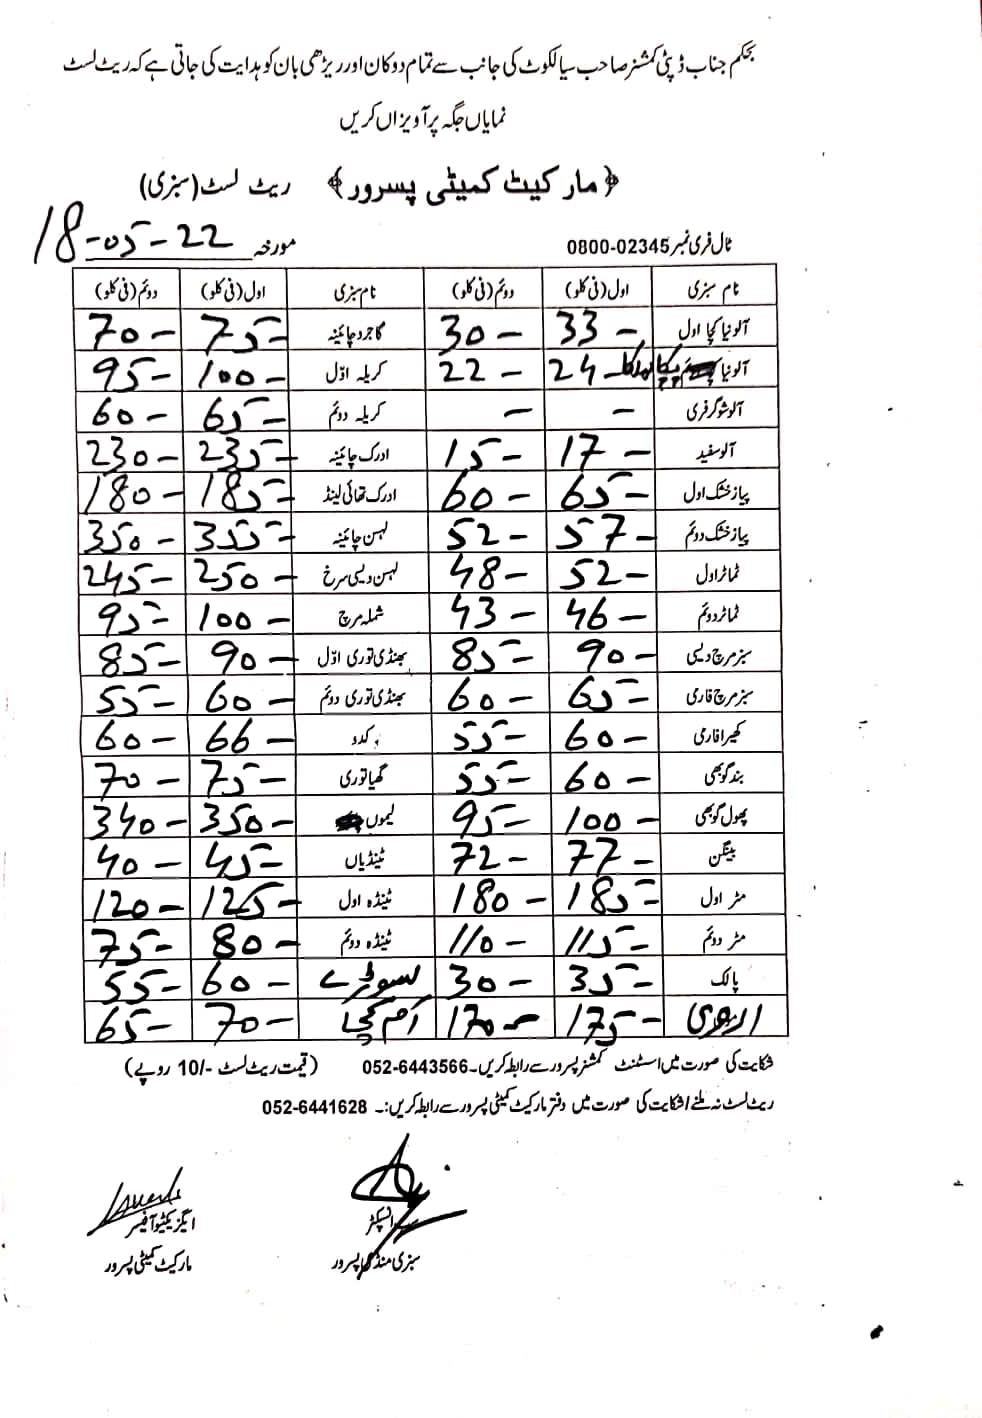 بحکم جناب ڈپٹی کمشنر صاحب سیالکوٹ کی جانب سے تمام دوکان اور ریڑھی بان کو ہدایت کی جاتی ہے کہ ریٹ لسٹ
نمایاں جگہ پر آویزاں کریں
﴿مارکیٹ کمیٹی پسرور﴾ ریٹ لسٹ (سبزی)
ٹال فری نمبر 0800-02345 مورخہ 18-05-22
نام سبزی اول (فی کلو) دوئم (فی کلو) نام سبزی اول (فی کلو) دوئم (فی کلو)
آلو نیا کچا اول 33 – 30 – گاجر چائینہ 75 – 70 –
آلو نیا پکا 24 – 22 – کریلہ اوّل 100 – 95 –
آلو شوگر فری – – کریلہ دوئم 65 – 60 –
آلو سفید 17 – 15 – ادرک چائینہ 235 – 230 –
پیاز خشک اول 65 – 60 – ادرک تھائی لینڈ 185 – 180 –
پیاز خشک دوئم 57 – 52 – لہسن چائینہ 355 – 350 –
ٹماٹر اول 52 – 48 – لہسن دیسی سرخ 250 – 245 –
ٹماٹر دوئم 46 – 43 – شملہ مرچ 100 – 95 –
سبز مرچ دیسی 90 – 85 – بھنڈی توری اوّل 90 – 85 –
سبز مرچ فارمی 65 – 60 – بھنڈی توری دوئم 60 – 55 –
کھیرا فارمی 60 – 55 – کدو 66 – 60 –
بند گوبھی 60 – 55 – گھیا توری 75 – 70 –
پھول گوبھی 100 – 95 – لیموں 350 – 340 –
بینگن 77 – 72 – ٹینڈیاں 45 – 40 –
مٹر اول 185 – 180 – ٹینڈہ اول 125 – 120 –
مٹر دوئم 115 – 110 – ٹینڈہ دوئم 80 – 75 –
پالک 35 – 30 – لسوڑے 60 – 55 –
اروی 175 – 170 – آم کچا 70 – 65 –
شکایت کی صورت میں اسسٹنٹ کمشنر پسرور سے رابطہ کریں۔ 052-6443566 (قیمت ریٹ لسٹ -/10 روپے)
ریٹ لسٹ نہ ملنے / شکایت کی صورت میں دفتر مارکیٹ کمیٹی پسرور سے رابطہ کریں:۔ 052-6441628
انسپکٹر ایگزیکٹو آفیسر
سبزی منڈی پسرور مارکیٹ کمیٹی پسرور